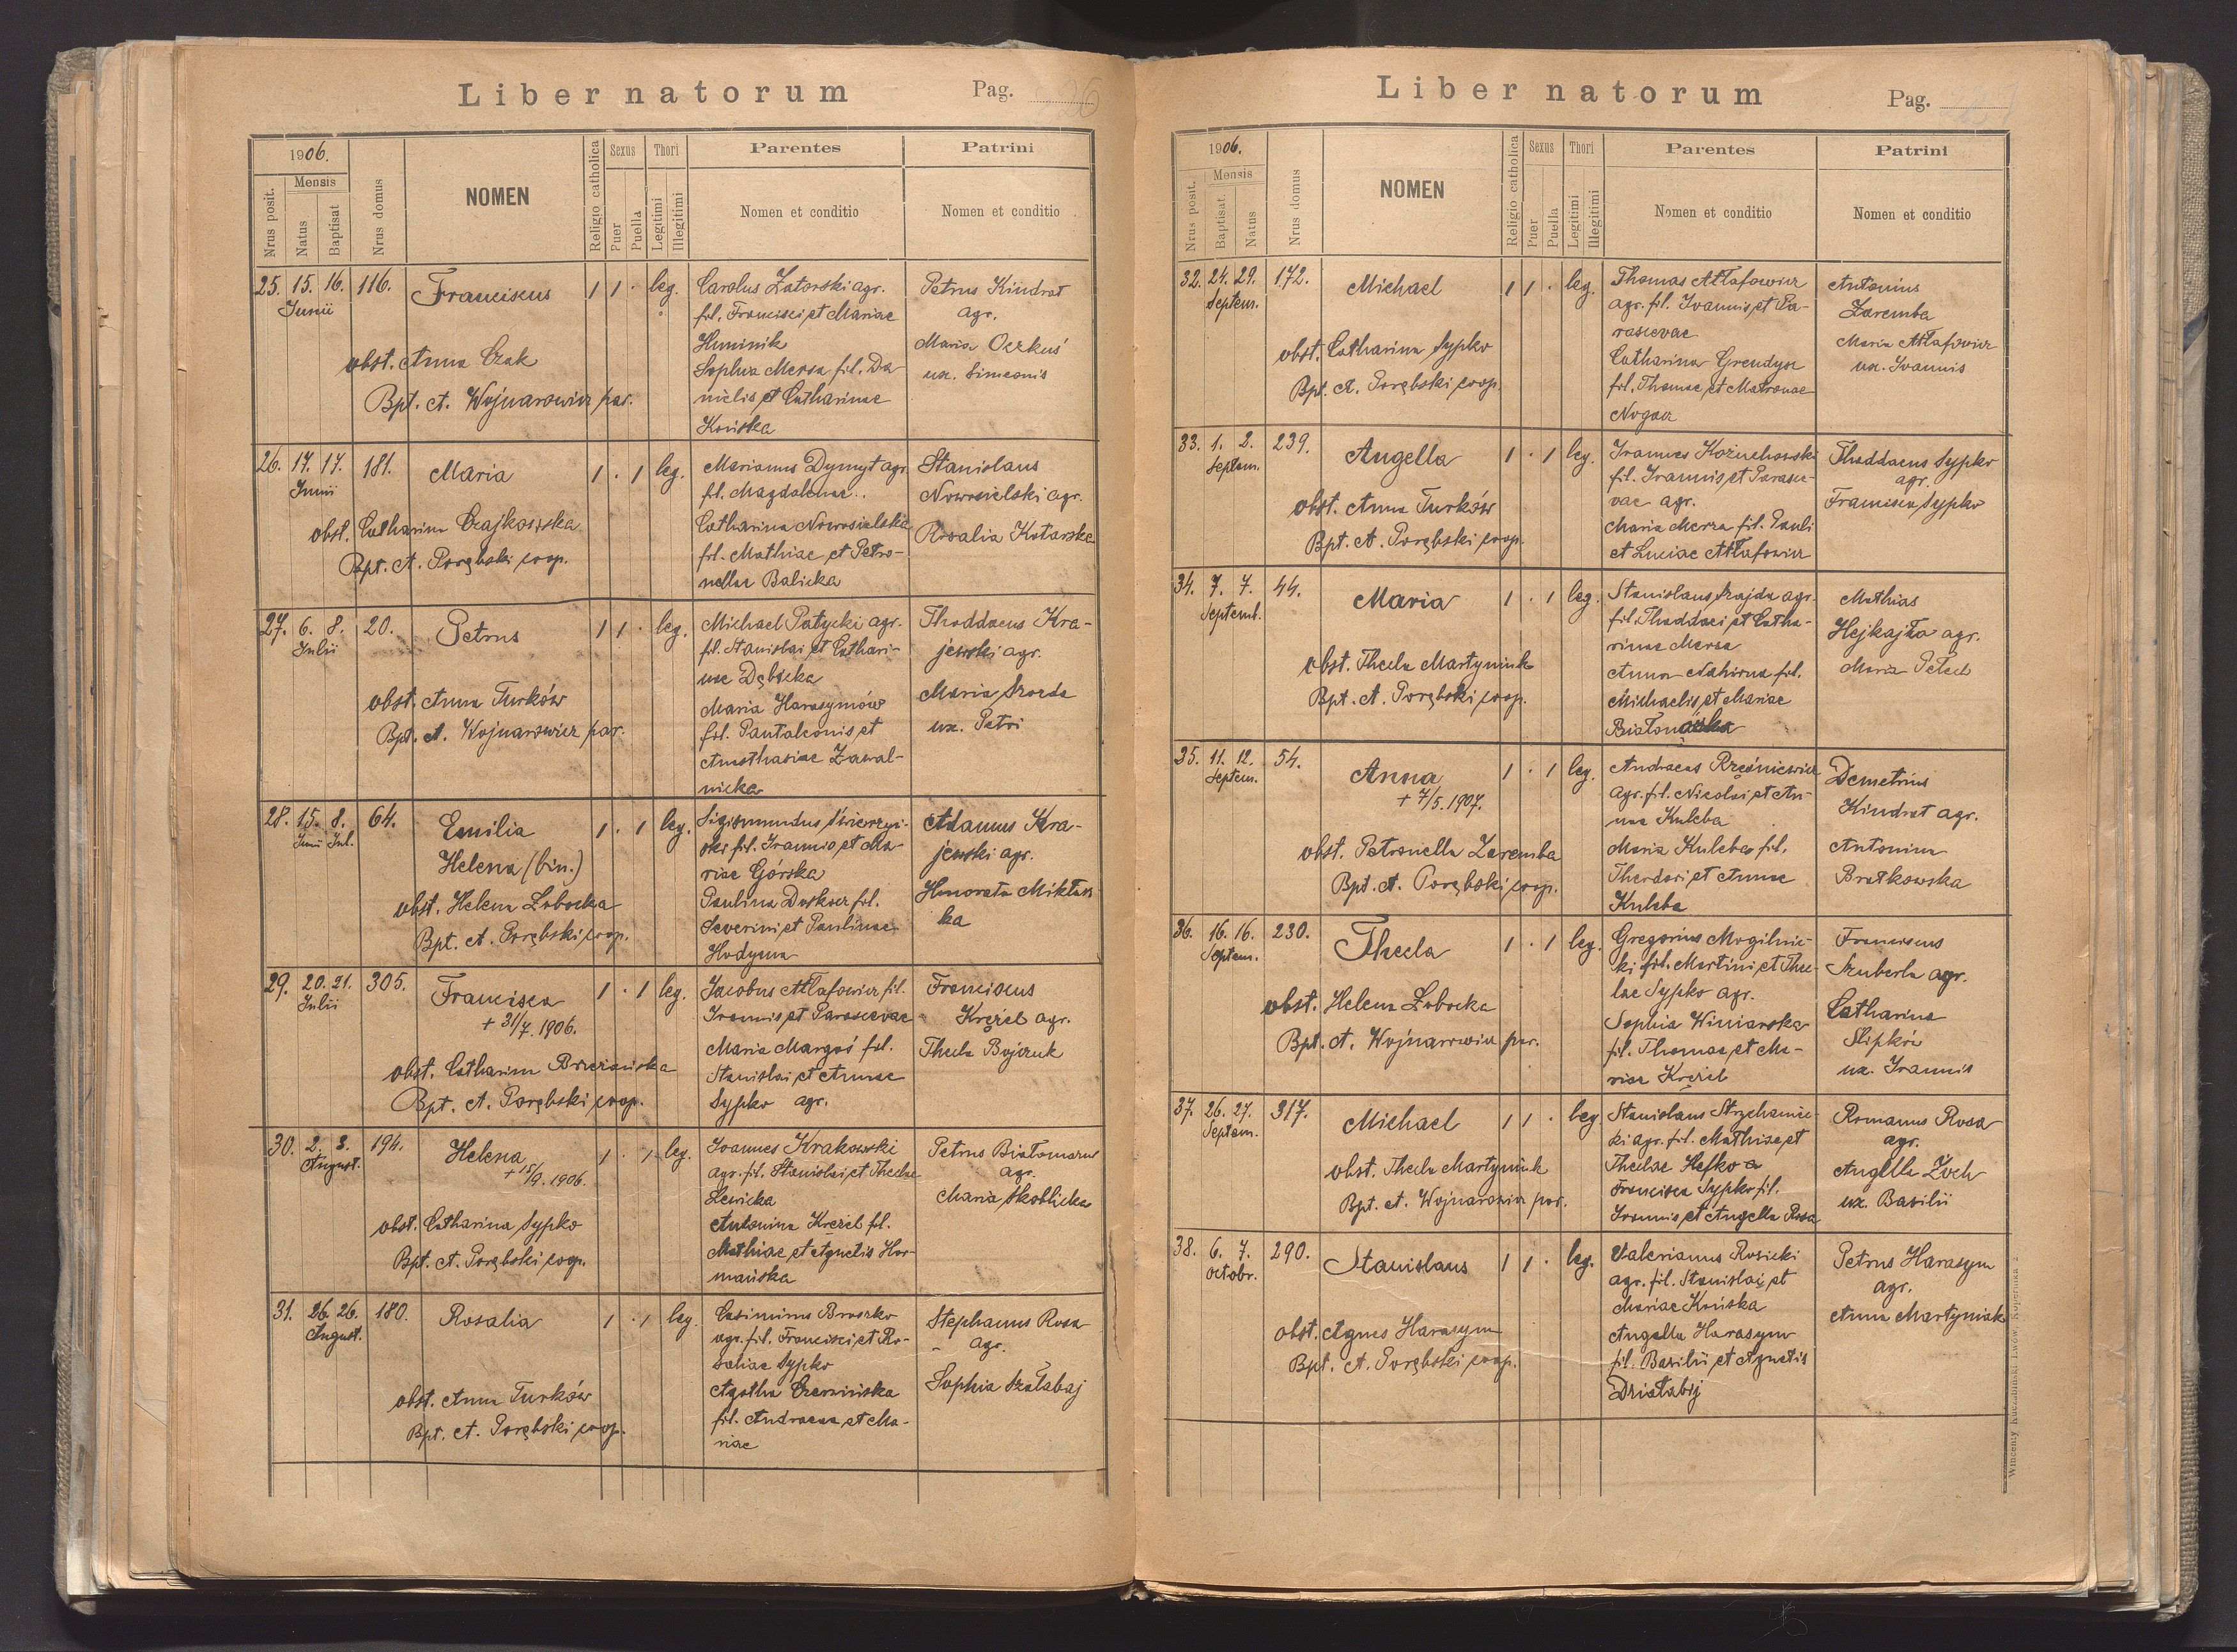 Liber natorum
Pag. 26
1906.
Nrus posit.
Mensis
Natus
Baptisat
Nrus domus
NOMEN
Religio catholica
Sexus
Puer
Puella
Thori
Legitimi
Illegitimi
Parentes
Nomen et conditio
Patrini
Nomen et conditio
25. 15. 16. 116. Franciscus 1 1 · leg.
Junii
obst. Anna Czak
Bpt. A. Wojnarowicz par.
Carolus Zatorski agr.
fil. Francisci et Mariae
Huminik
Sophia Mersa fil. Da
nielis et Catharinae
Końska
Petrus Kindrat
agr.
Maria Oczkuś
ux. Simeonis
26. 17. 17. 181. Maria 1 · 1 leg.
Junii
obst. Catharina Czajkowska
Bpt. A. Porębski coop.
Marianus Dymyt agr.
fil. Magdalenae
Catharina Nowosielska
fil. Mathiae et Petro-
nellae Balicka
Stanislaus
Nowosielski agr.
Rosalia Kotarska
27. 6. 8. 20. Petrus 1 1 · leg.
Julii
obst. Anna Turków
Bpt. A. Wojnarowicz par.
Michael Patycki agr.
fil. Stanislai et Cathari-
nae Dębicka
Maria Harasymów
fil. Pantaleonis et
Anasthasiae Zawal-
nicka
Thaddaeus Kra-
jewski agr.
Maria
ux. Petri
28. 15. 8. 64. Emilia 1 · 1 leg.
Junii Jul.
Helena (bin.)
obst. Helena Łobocka
Bpt. A. Porębski coop.
Sigismundus Świerzyń-
ski fil. Ioannis et Ma-
riae Górska
Paulina fil.
Severini et Paulinae
Hodyma
Adamus Kra-
jewski agr.
Honorata Mikłas
ka
29. 20. 21. 305. Francisca 1 · 1 leg.
Julii
+ 31/7. 1906.
obst. Catharina Brzezińska
Bpt. A. Porębski coop.
Jacobus Attafowicz fil.
Ioannis et Parascevae
Maria Margoś fil.
Stanislai et Annae
Sypko agr.
Franciscus
Krężel agr.
Thecla Bojczuk
30. 2. 3. 194. Helena 1 · 1 leg.
August.
+ 15/9. 1906.
obst. Catharina Sypko
Bpt. A. Porębski coop.
Ioannes Krakowski
agr. fil. Stanislai et Theclae
Lewicka
Antonina Krężel fil.
Mathiae et Agnetis Hor-
mańska
Petrus Białowarus
agr.
Maria Skoblicka
31. 26. 26. 180. Rosalia 1 · 1 leg.
August.
obst. Anna Turków
Bpt. A. Porębski coop.
Casimirus Broszko
agr. fil. Francisci et Ro-
saliae Sypko
Agatha Czerwińska
fil. Andreae et Ma-
riae
Stephanus Rosa
agr.
Sophia Szałabaj
Liber natorum
Pag.
1906.
Nrus posit.
Mensis
Baptisat.
Natus
Nrus domus
NOMEN
Religio catholica
Sexus
Puer
Puella
Thori
Legitimi
Illegitimi
Parentes
Nomen et conditio
Patrini
Nomen et conditio
32. 24. 29. 172. Michael 1 1 · leg.
Septem.
obst. Catharina Sypko
Bpt. A. Porębski coop.
Thomas Attafowicz
agr. fil. Ioannis et Pa-
rascevae
Catharina Grendysa
fil. Thomae et Matronae
Nogacz
Antonius
Zaremba
Maria Attafowicz
ux. Ioannis
33. 1. 2. 239. Angella 1 · 1 leg.
Septem.
obst. Anna Turków
Bpt. A. Porębski coop.
Ioannes Kożuchowski
fil. Ioannis et Parasce-
vae agr.
Maria Mersa fil. Pauli
et Luciae Attafowicz
Thaddaeus Sypko
agr.
Francisca Sypko
34. 7. 7. 44. Maria 1 · 1 leg.
Septemb.
obst. Thecla Martyniuk
Bpt. A. Porębski coop.
Stanislaus Szajda agr.
fil. Thaddaei et Catha-
rinae Mersa
Anna Nahirna fil.
Michaelis et Mariae
Mathias
Hejkajła agr.
Maria Petech
35. 11. 12. 54. Anna 1 · 1 leg.
Septem.
+ 7/5. 1907.
obst. Petronella Zaremba
Bpt. A. Porębski coop.
Andreas Rześniewicz
agr. fil. Nicolai et An-
nae Kuleba
Maria Kuleba fil.
Theodori et Annae
Kuleba
Demetrius
Kindrat agr.
Antonina
Bratkowska
36. 16. 16. 230. Thecla 1 · 1 leg.
Septem.
obst. Helena Łobocka
Bpt. A. Wojnarowicz par.
Gregorius Mogilnic-
ki fil. Martini et Thec-
lae Sypko agr.
Sophia Winiarska
fil. Thomae et Ma-
riae Krężel
Franciscus
Szuberla agr.
Catharina
Slipkó
ux. Ioannis
37. 26. 27. 317. Michael 1 1 · leg.
Septem.
obst. Thecla Martyniuk
Bpt. A. Wojnarowicz par.
Stanislaus Strzchanic-
ki agr. fil. Mathiae et
Theclae Hefko a
Francisca Sypko fil.
Ioannis et Angella Rosa
Romanus Rosa
agr.
Angella Zoch
ux. Basilii
38. 6. 7. 290. Stanislaus 1 1 · leg.
Octobr.
obst. Agnes Harasym
Bpt. A. Porębski coop.
Valerianus Rosicki
agr. fil. Stanislai et
Mariae Końska
Angella Harasym
fil. Basilii et Agnetis
Działabij
Petrus Harasym
agr.
Anna Martyniak